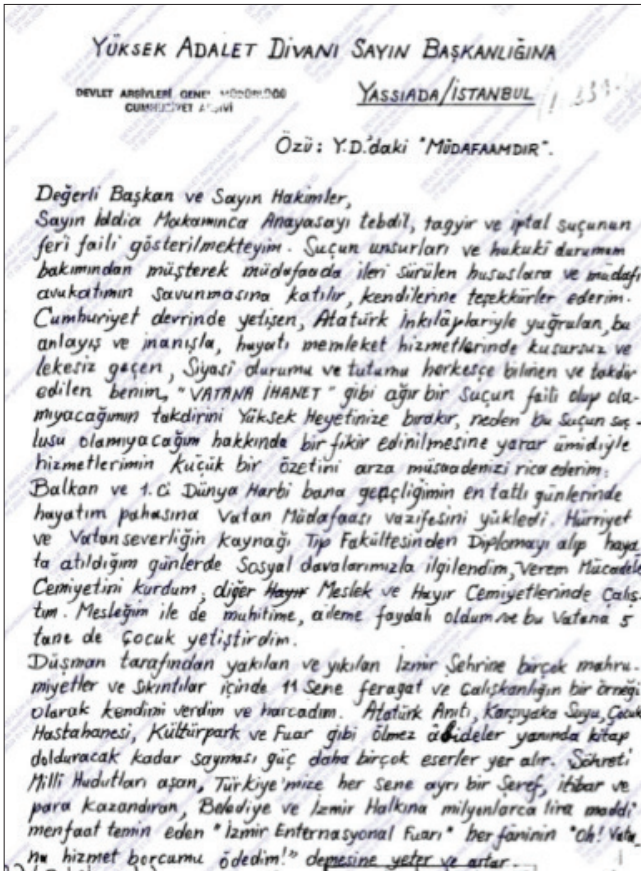 YÜKSEK ADALET DİVANI SAYIN BAŞKANLIĞINA
DEVLET ARŞİVLERİ GENEL MÜDÜRLÜĞÜ
CUMHURİYET ARŞİVİ
YASSIADA/İSTANBUL
Özü: Y.D.'daki "MÜDAFAAMDIR".
Değerli Başkan ve Sayın Hakimler,
Sayın İddia Makamınca Anayasayı tebdil, tagyir ve iptal suçunun
feri faili gösterilmekteyim. Suçun unsurları ve hukukî durumum
bakımından müşterek müdafaada ileri sürülen hususlara ve müdafi
avukatımın savunmasına katılır, kendilerine teşekkürler ederim.
Cumhuriyet devrinde yetişen, Atatürk İnkılâplariyle yuğrulan, bu
anlayış ve inanışla, hayatı memleket hizmetlerinde kusursuz ve
lekesiz geçen, Siyasî durumu ve tutumu herkesçe bilinen ve takdir
edilen benim, "VATANA İHANET" gibi ağır bir Suçun faili olup ola-
mıyacağımın takdirini Yüksek Heyetinize bırakır, neden bu Suçun suç-
lusu olamıyacağım hakkında bir fikir edinilmesine yarar ümidiyle
hizmetlerimin küçük bir özetini arza müsaadenizi rica ederim:
Balkan ve 1.Ci Dünya Harbi bana gençliğimin en tatlı günlerinde
hayatım pahasına Vatan Müdafaası vazifesini yükledi. Hürriyet
ve Vatanseverliğin kaynağı Tıp Fakültesinden Diplomayı alıp haya-
ta atıldığım günlerde Sosyal davalarımızla ilgilendim, Verem Mücadele
Cemiyetini kurdum, diğer Hayır Meslek ve Hayır Cemiyetlerinde Çalış-
tım. Mesleğim ile de muhitime, aileme faydalı oldum ve bu Vatana 5
tane de Çocuk yetiştirdim.
Düşman tarafından yakılan ve yıkılan İzmir Şehrine birçok mahru-
miyetler ve Sıkıntılar içinde 11 Sene feragat ve Çalışkanlığın bir örneği
olarak kendimi verdim ve harcadım. Atatürk Anıtı, Karşıyaka Suyu, Çocuk
Hastahanesi, Kültürpark ve Fuar gibi ölmez âbideler yanında kitap
dolduracak kadar sayması güç daha birçok eserler yer alır. Şöhreti
Milli Hudutları aşan, Türkiye'mize her sene ayrı bir Şeref, itibar ve
para kazandıran, Belediye ve İzmir Halkına milyonlarca lira maddi
menfaat temin eden "İzmir Enternasyonal Fuarı" her faninin "Oh! Vata-
na hizmet borcumu ödedim!" demesine yeter ve artar.